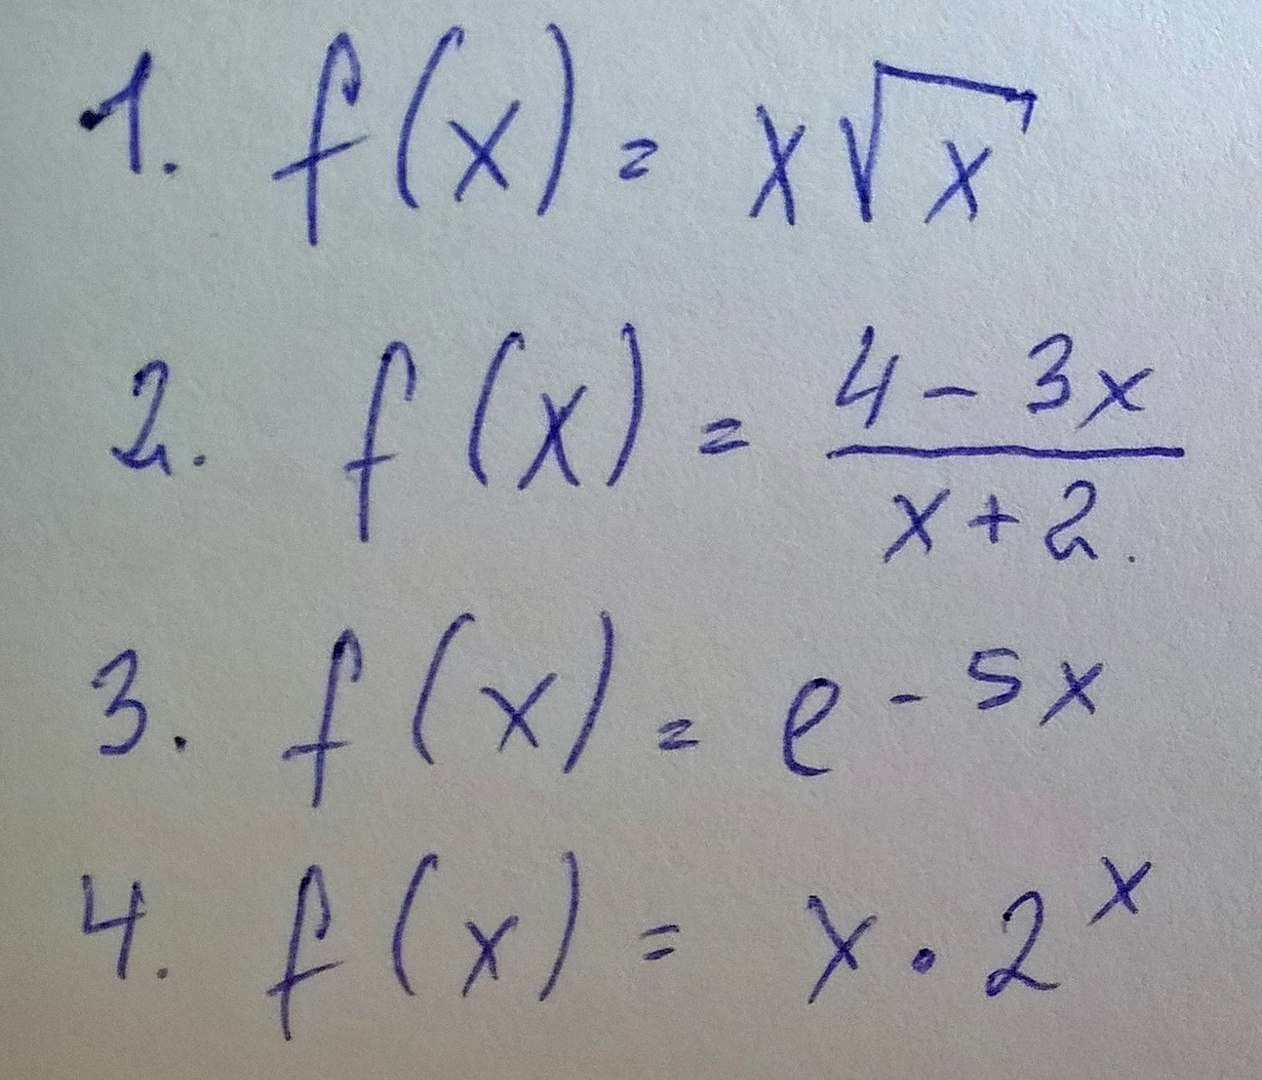 1. f(x) = x√x
2. f(x) = (4 - 3x)/(x + 2).
3. f(x) = e^(-5x)
4. f(x) = x · 2^x